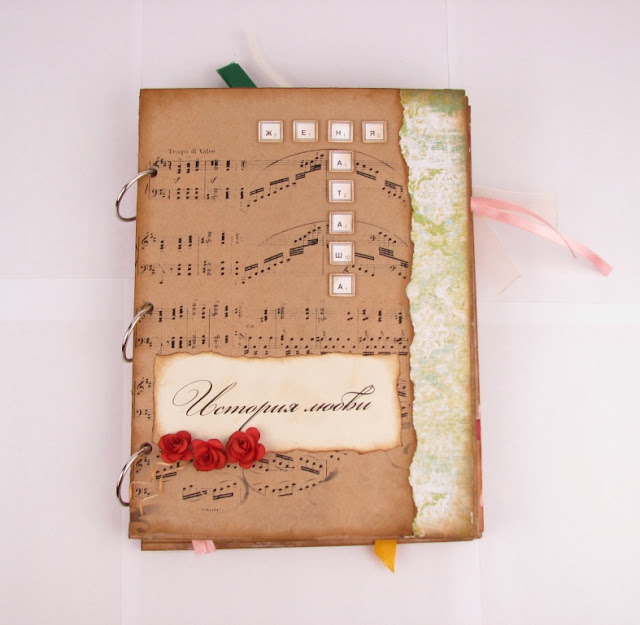 ЖЕНЯ
Tempo di Valse.
А
Т
А
Ш
А
История любви